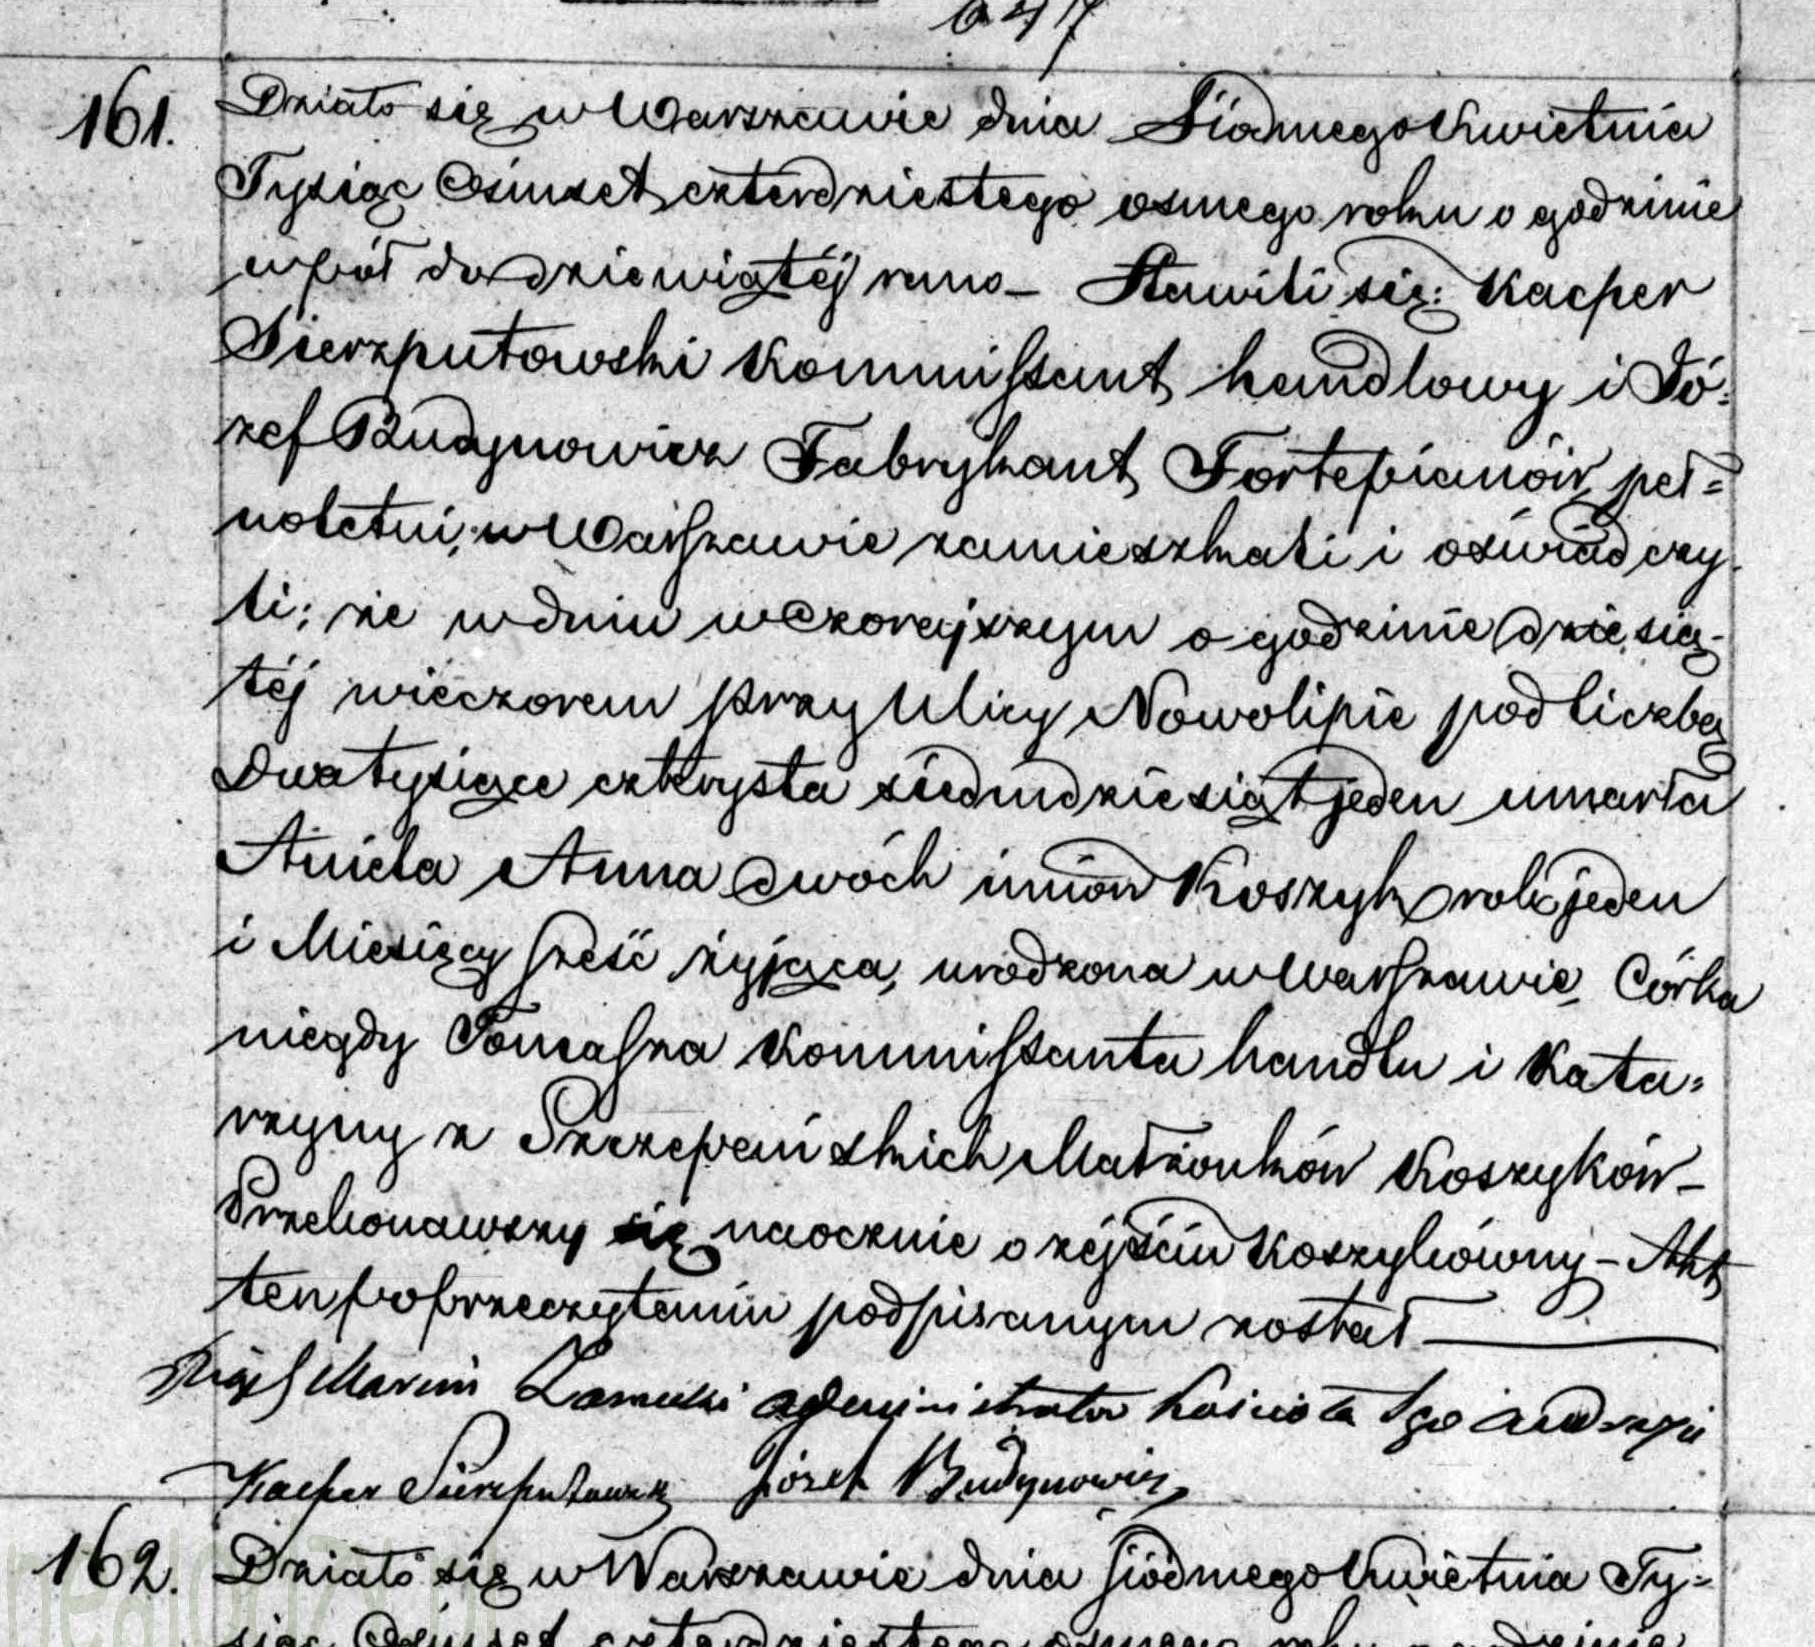 647
161. Działo się w Warszawie dnia Siódmego Kwietnia
Tysiąc Ośmset czterdziestego osmego roku o godzinie
wpół do dziewiątéj rano – Stawili się: Kacper
Sierzputowski Kommissant handlowy i Jó=
zef Budynowicz Fabrykant Fortepianów, peł=
noletni, w Warszawie zamieszkali i oświadczy
li; że w dniu wczorajszym o godzinie dziesią-
téj wieczorem przy Ulicy Nowolipie pod liczbą
Dwatysiące czterysta siedmdziesiąt jeden umarła
Aniela Anna dwóch imion Koszyk rok jeden
i Miesięcy sześć żyjąca, urodzona w Warszawie, Córka
niegdy Tomasza Kommissanta handlu i Kata=
rzyny z Szczepańskich Małżonków Koszyków –
Przekonawszy się naocznie o zéjściu Koszykówny – Akt
ten po przeczytaniu podpisanym został
Marcin Zamecki administrator Kościoła Sgo Andrzeja
Kacper Sierzputowski Józef Budynowicz
162. Działo się w Warszawie dnia siódmego Kwietnia Ty=
siąc Ośmset czterdziestego osmego roku o godzinie